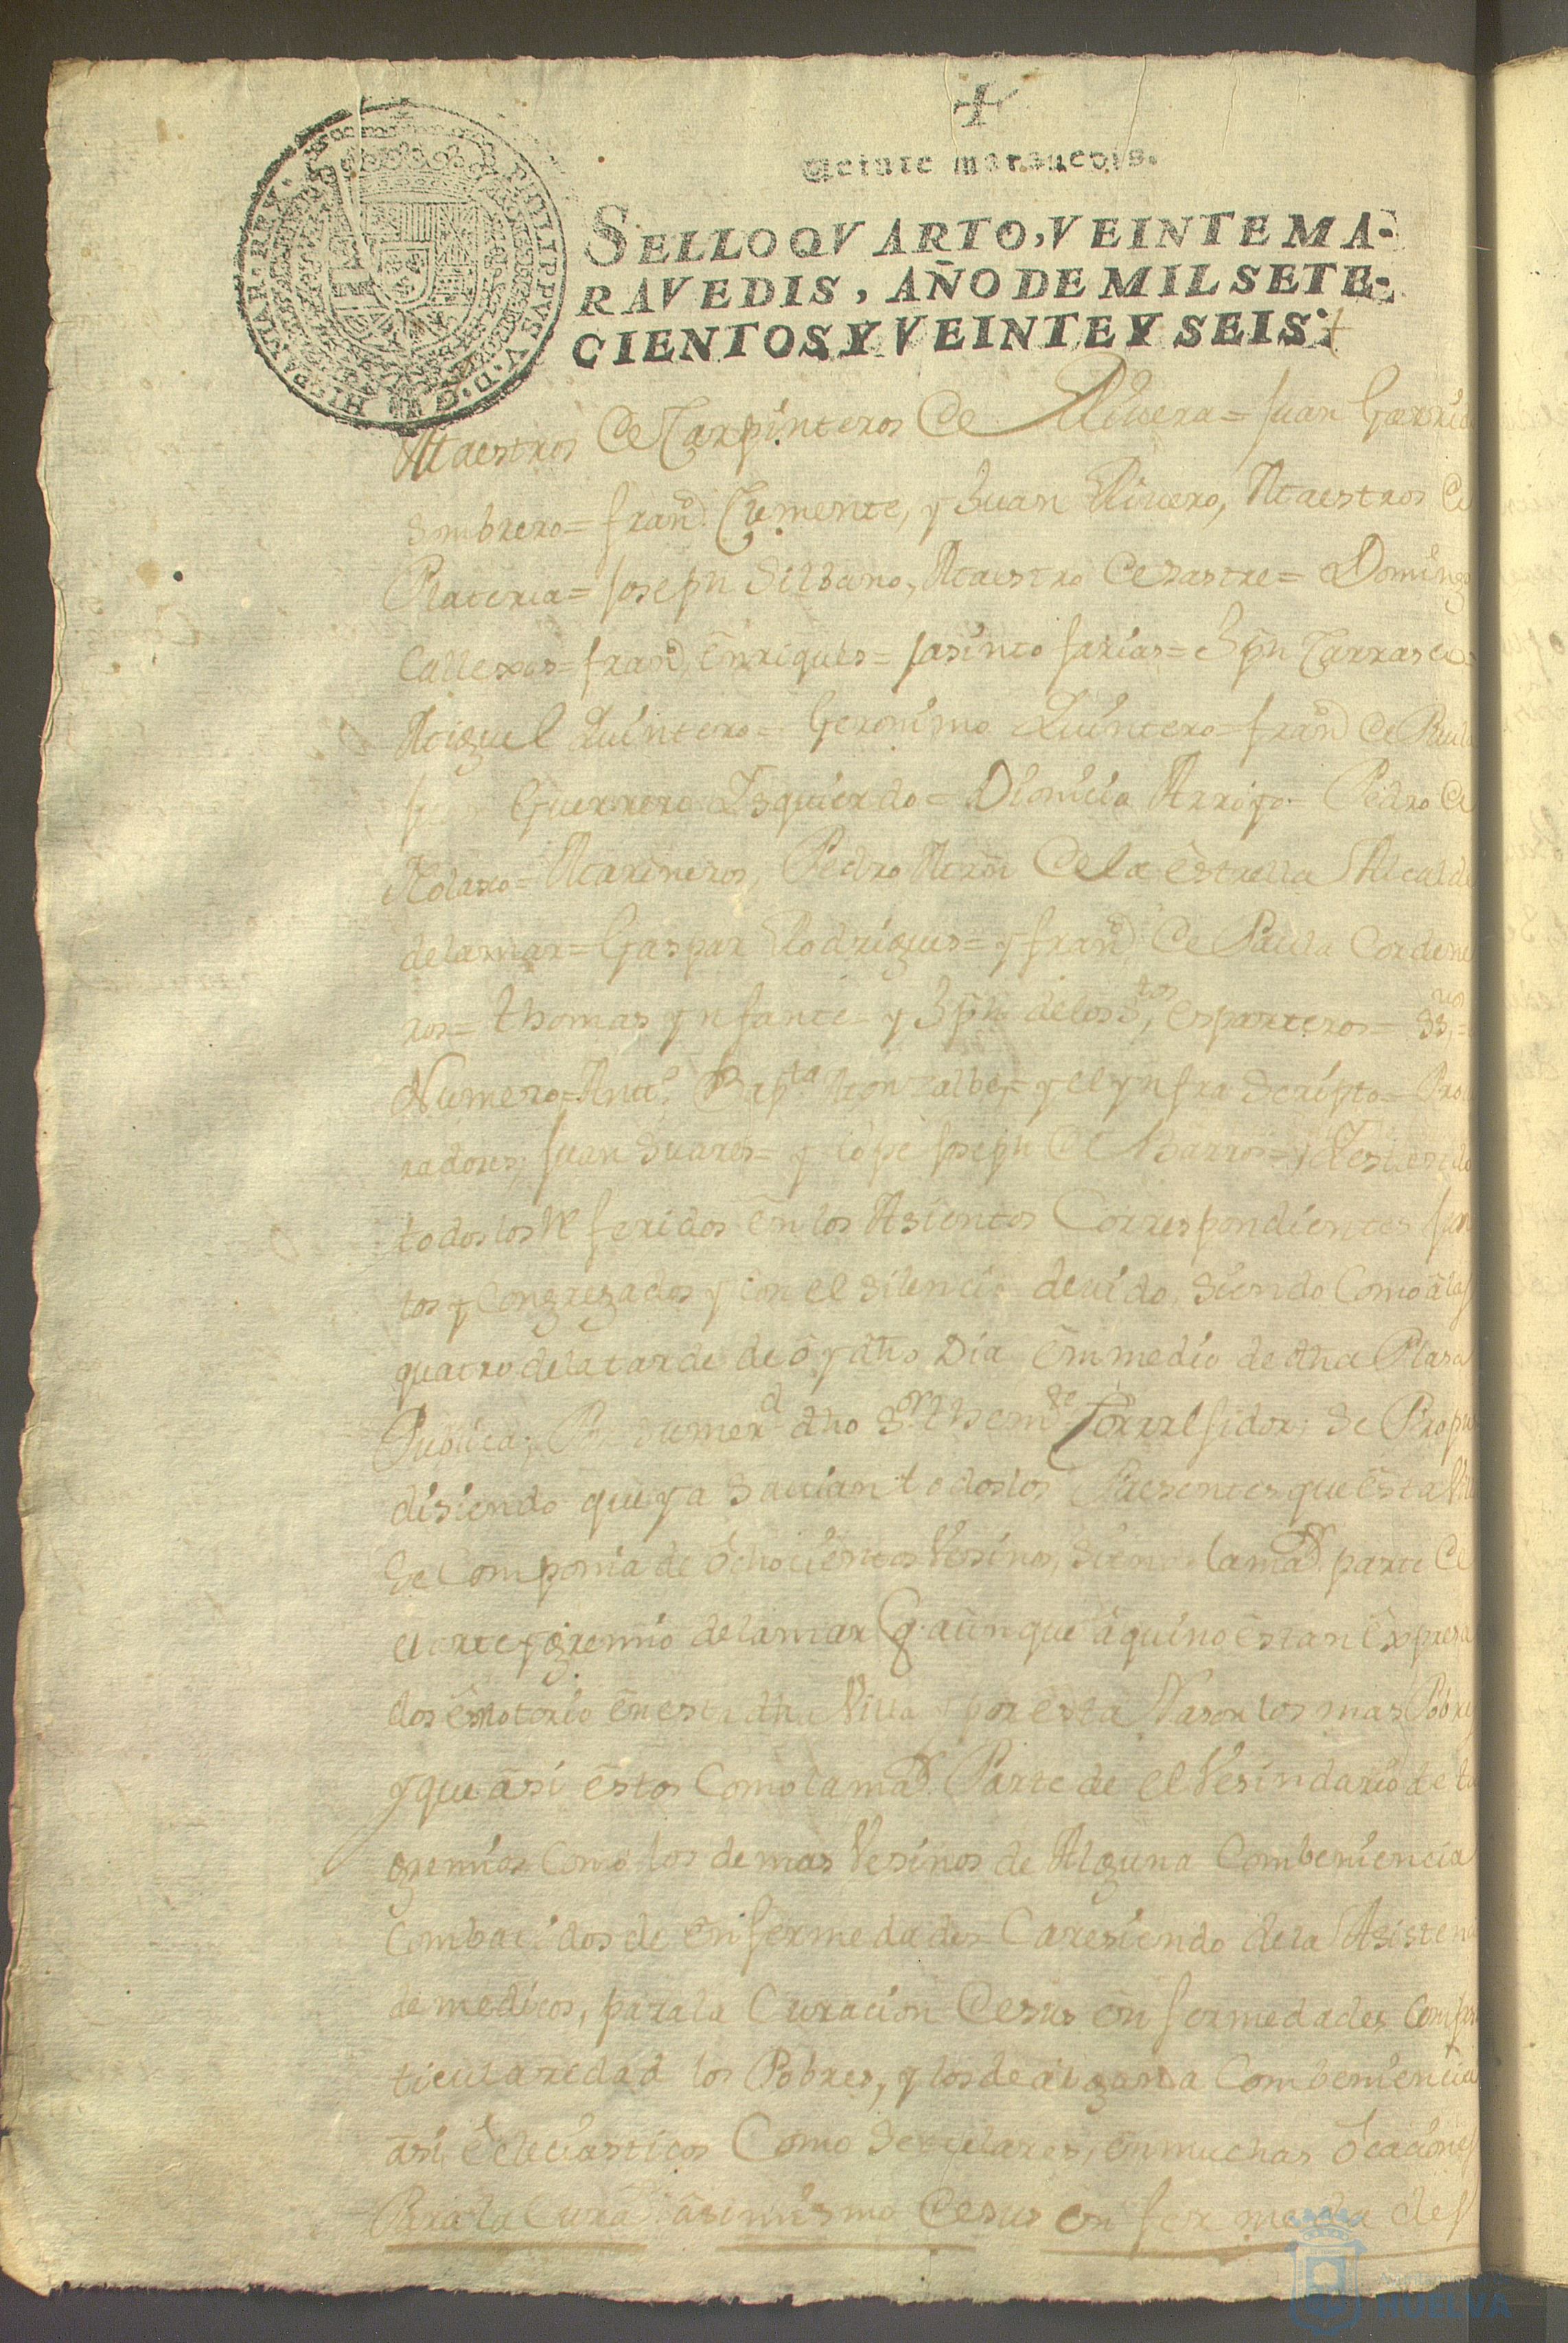 Veinte maravedis.
SELLO QVARTO, VEINTE MA-
RAVEDIS, AÑO DE MIL SETE-
CIENTOS Y VEINTE Y SEIS.
PHILIPPVS V. D. G. HISPANIAR. REX
Maestros de Carpinteros de Rivera = Juan Garrido
Sombrero = Fran.co Clemente, y Juan Rivero, Maestros de
Plateria = Joseph Silbano, Maestro de sastre = Domingo
Callexas = Fran.co Enriques = Jasinto farias = Jph Carrasco =
Miguel Quintero = Geronimo Quintero = fran.co de Paula
Guerrero Isquierdo = Dionicia Arroyo = Pedro de
Molasco = Marineros, Pedro Mrñ de la estrella Alcalde
de la mar = Gaspar Rodrigues = y fran.co de Paula Cordone
ros = thomas ynfante = y Jph de los S.tos, esparteros = SS.nos =
Numero = Ant.o Bap.ta Gonsalbes = y el ynfrascripto = Procu
radores, Juan Suares = y Lope Joseph de Barros = y
todos los Referidos en los Asientos Correspondientes Jun
tos y Congregados y con el silencio devido, siendo Como a las
quatro de la tarde de oy dho Dia en medio de dha Plasa
Publica, su mer.d dho S.or then.te Correxidor, se Propu
disiendo que ya savian todos los Presentes que esta Villa
se Componia de ochocientos Vesinos, siendo la ma.r parte de
el arte y gremio de la mar q. aunque aqui no estan expresa
dos es notorio en esta dha Villa y por esta Rason los mas Pobres
y que asi estos Como la ma.r Parte de el Vesindario de to
gremios Como los demas Vesinos de Alguna Combeniencia
Combatidos de enfermedades Caresiendo de la Asistencia
de medicos, para la Curacion de sus enfermedades Com par
ticularedad los Pobres, y los de alguna Combeniencia
asi eclesiasticos Como Seculares, en muchas ocaciones
Para la Cura.n asimismo de sus enfermedades
HUELVA